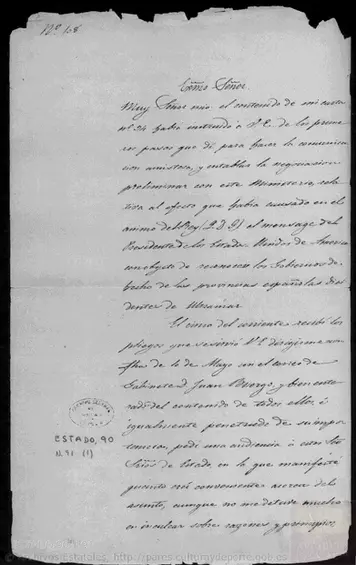 Nº 108
Exmo Señor.
Muy Señor mio: el contenido de mi carta
nº 24 habrá instruido á V.E. de los prime
ros pasos que dí para hacer la comunica
cion amistosa, y entablar la negociacion
preliminar con este Ministerio, rela
tiva al efecto que habia causado en el
animo del Rey (Q.D.G) el mensage del
Presidente de los Estados Unidos de America
con objeto de reconocer los Gobiernos de
hecho de las provincias españolas disi
dentes de Ultramar.
El cinco del corriente recibí los
pliegos que se sirvió V.E. dirigirme con
fha de 10 de Mayo con el correo de
Gabinete D. Juan Burgo, y bien ente
rado del contenido de todos ellos, é
igualmente penetrado de su impor
tancia, pedí una audiencia á este Sor
Srio de Estado en la que manifesté
quanto creí conveniente acerca del
asunto, aunque no me detuve mucho
en inculcar sobre razones y principios,
ESTADO, 90
N. 91 (1)
Archivos Estatales, http://pares.culturaydeporte.gob.es